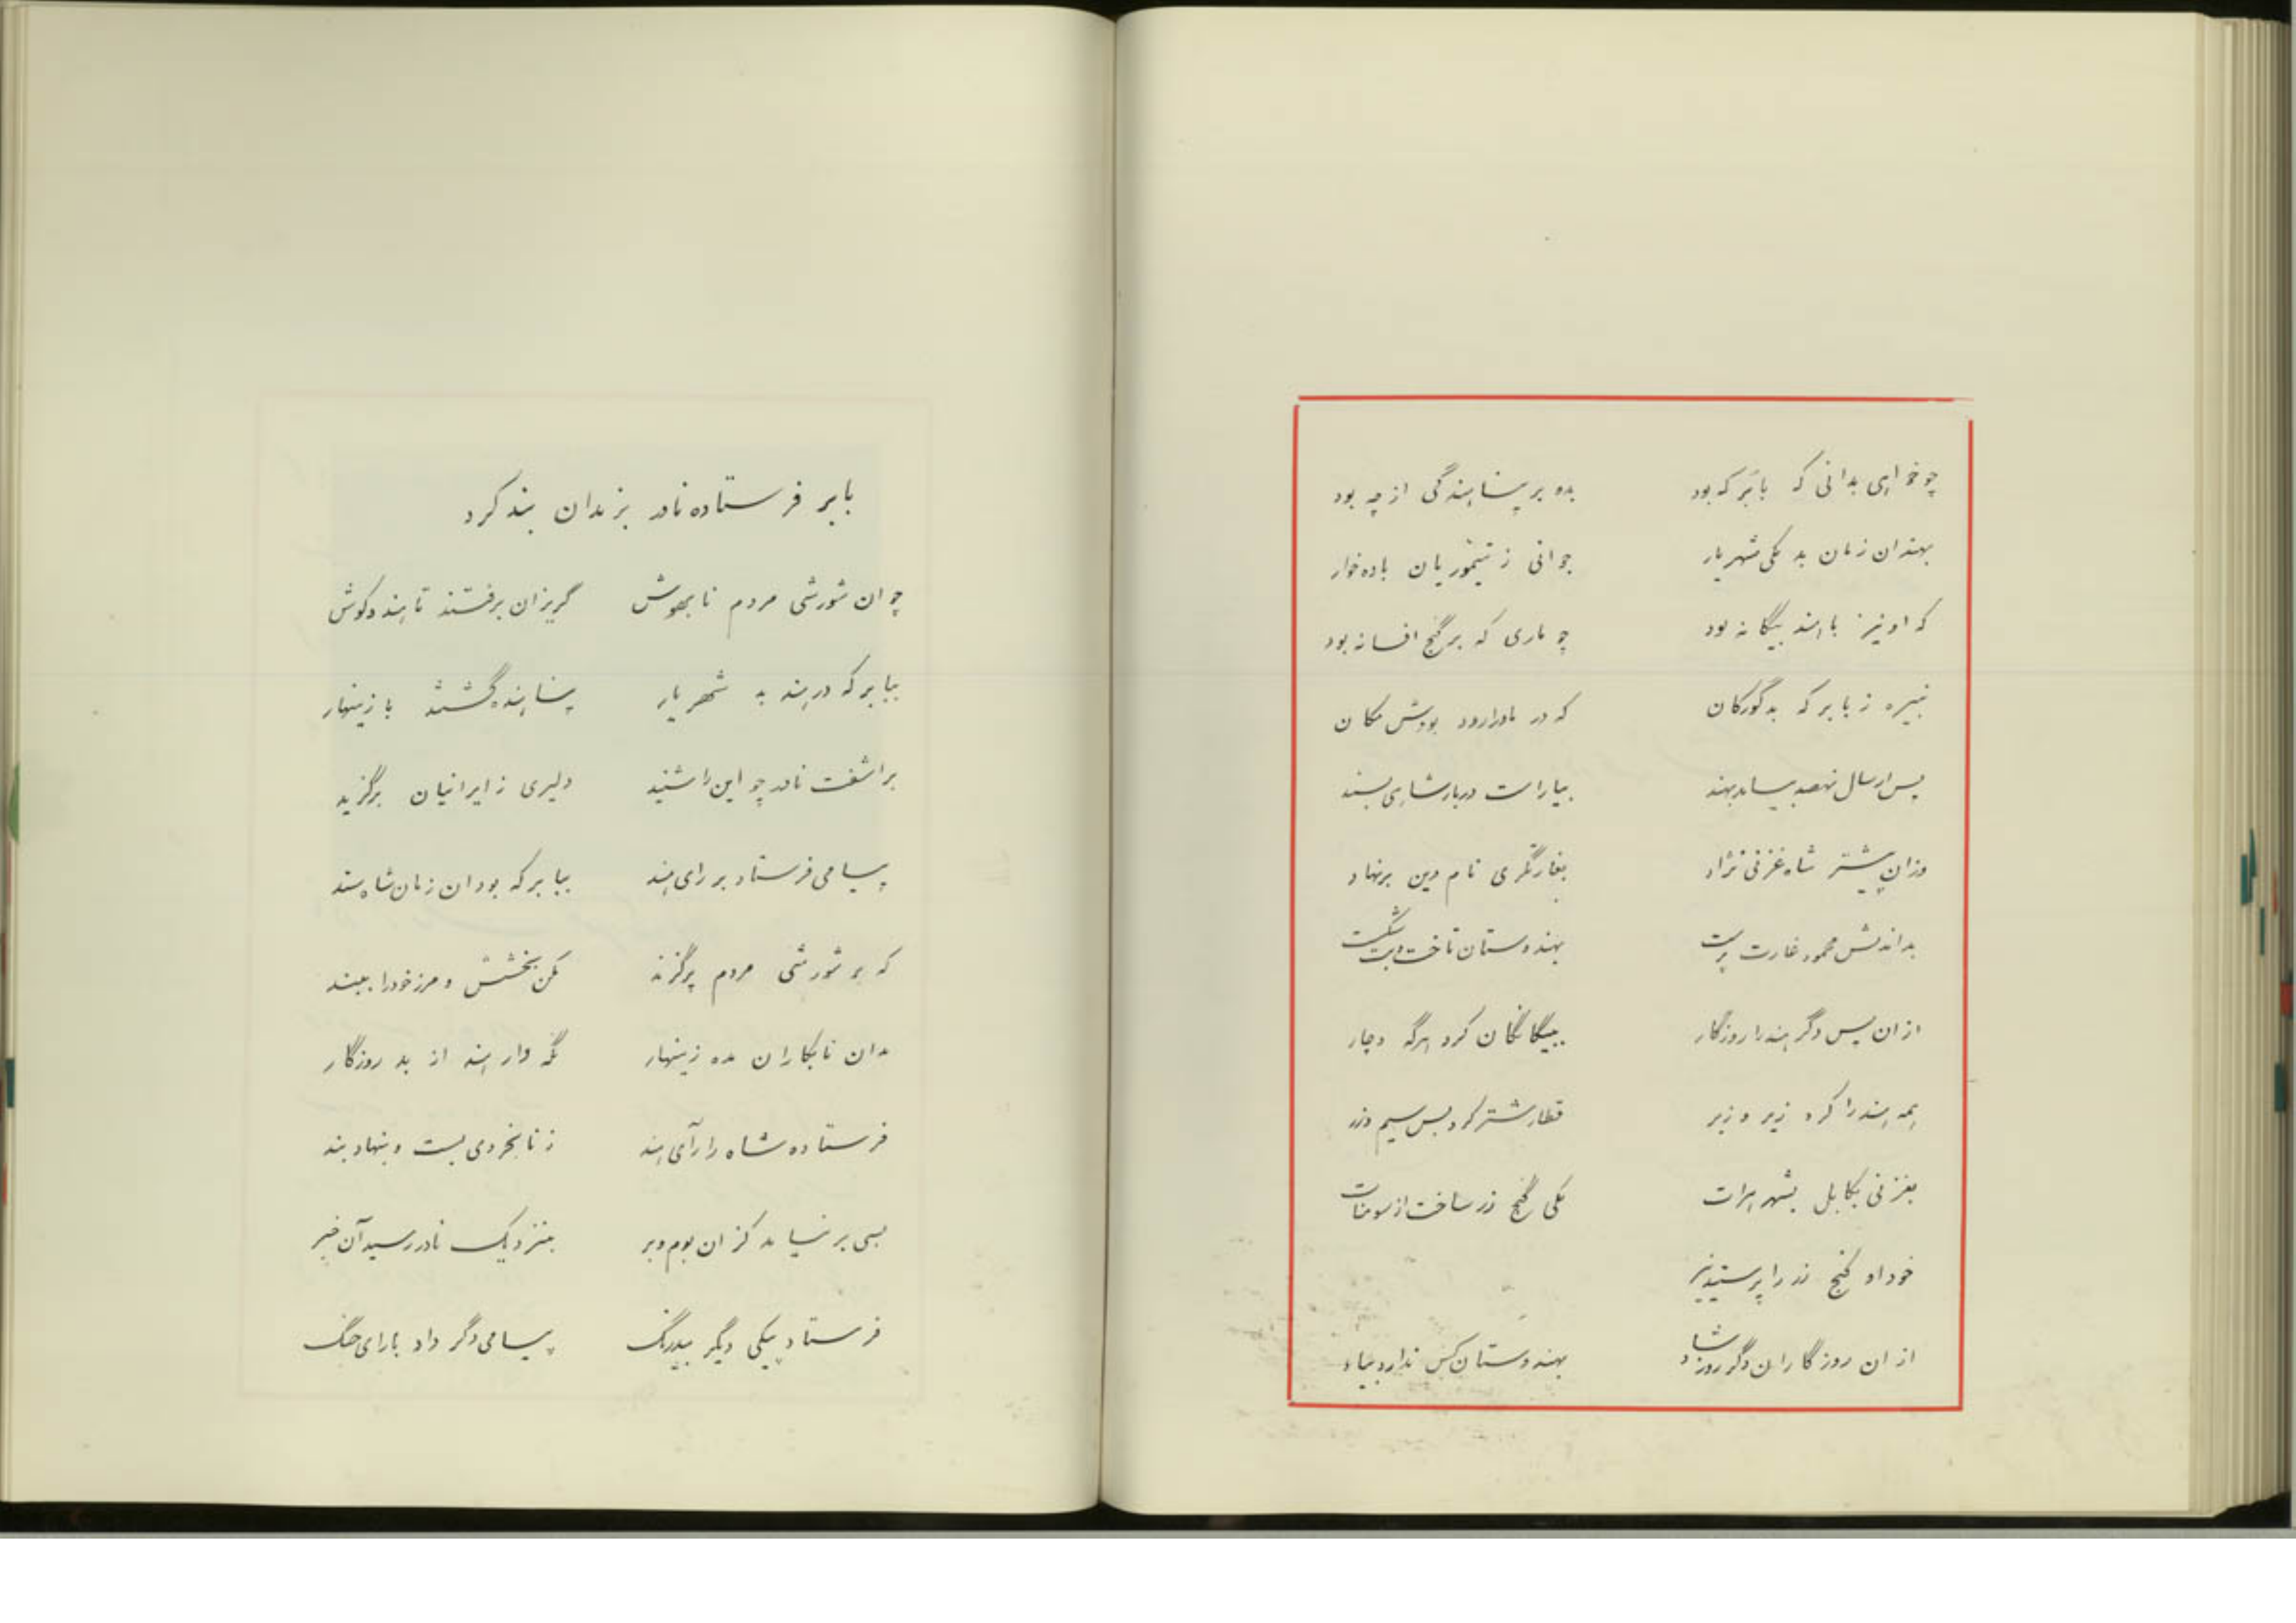 چو خواهی بدانی که بابَر که بود    بده بر پناهندگی از چه بود
بهند ان زمان بد یکی شهریار    جوانی ز تیموریان باده خوار
که او نیز با هند بیگانه بود    چو ماری که بر گنج افسانه بود
نبیره ز بابر که بد گورکان    که در ماورارود بودش مکان
پس از سال نهصد بیامد بهند    بیاراست دربار شاهی بسند
وزان پیشتر شاه غزنی نژاد    بغارتگری نام دین برنهاد
بداندیش محمود غارت پرست    بهندوستان تاخت و بت شکست
از ان پس دگر هند را روزگار    ببیگانگان کرد هرگه دچار
همه هند را کرد زیر و زبر    قطار شتر کرد بس سیم و زر
بغزنی بکابل بشهر هرات    یکی گنج زر ساخت از سومنات
خود او گنج زر را پرستید نیز
از ان روزگاران دگر روز شاد    بهندوستان کس ندارد بیاد
بابر فرستاده نادر بزندان بند کرد
چو ان شورشی مردم نابهوش    گریزان برفتند تا هندوکوش
ببابر که در هند بد شهریار    پناهنده گشتند با زینهار
براشفت نادر چو این را شنید    دلیری ز ایرانیان برگزید
پیامی فرستاد بر رای هند    ببابر که بود ان زمان شاه سند
که بر شورشی مردم پرگزند    مکن بخشش و مرز خود را ببند
بدان نابکاران مده زینهار    نگه دار هند از بد روزگار
فرستاده شاه را رآی هند    ز نابخردی بست و بنهاد بند
بسی بر نیامد کز ان بوم و بر    بنزدیک نادر رسید آن خبر
فرستاد پیکی دیگر بیدرنگ    پیامی دگر داد بارای جنگ